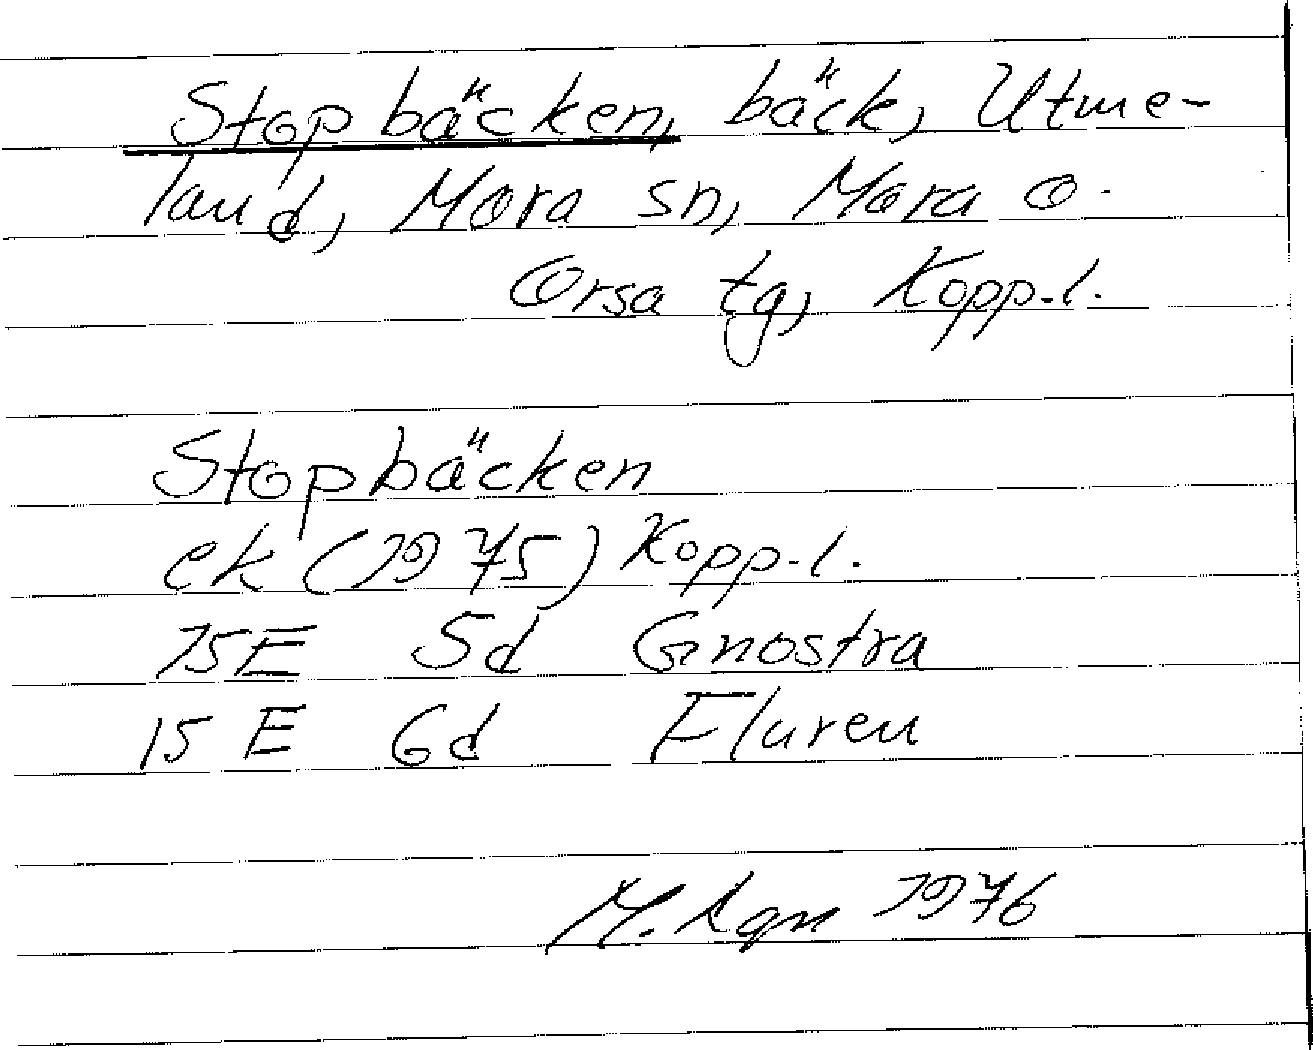 Stopbäcken, bäck, Utme-
land, Mora sn, Mora o.
Orsa tg, Kopp.l.
Stopbäcken
ek (1975) Kopp.l.
15E 5d Gnostra
15E 6d Fluren
M. 1976